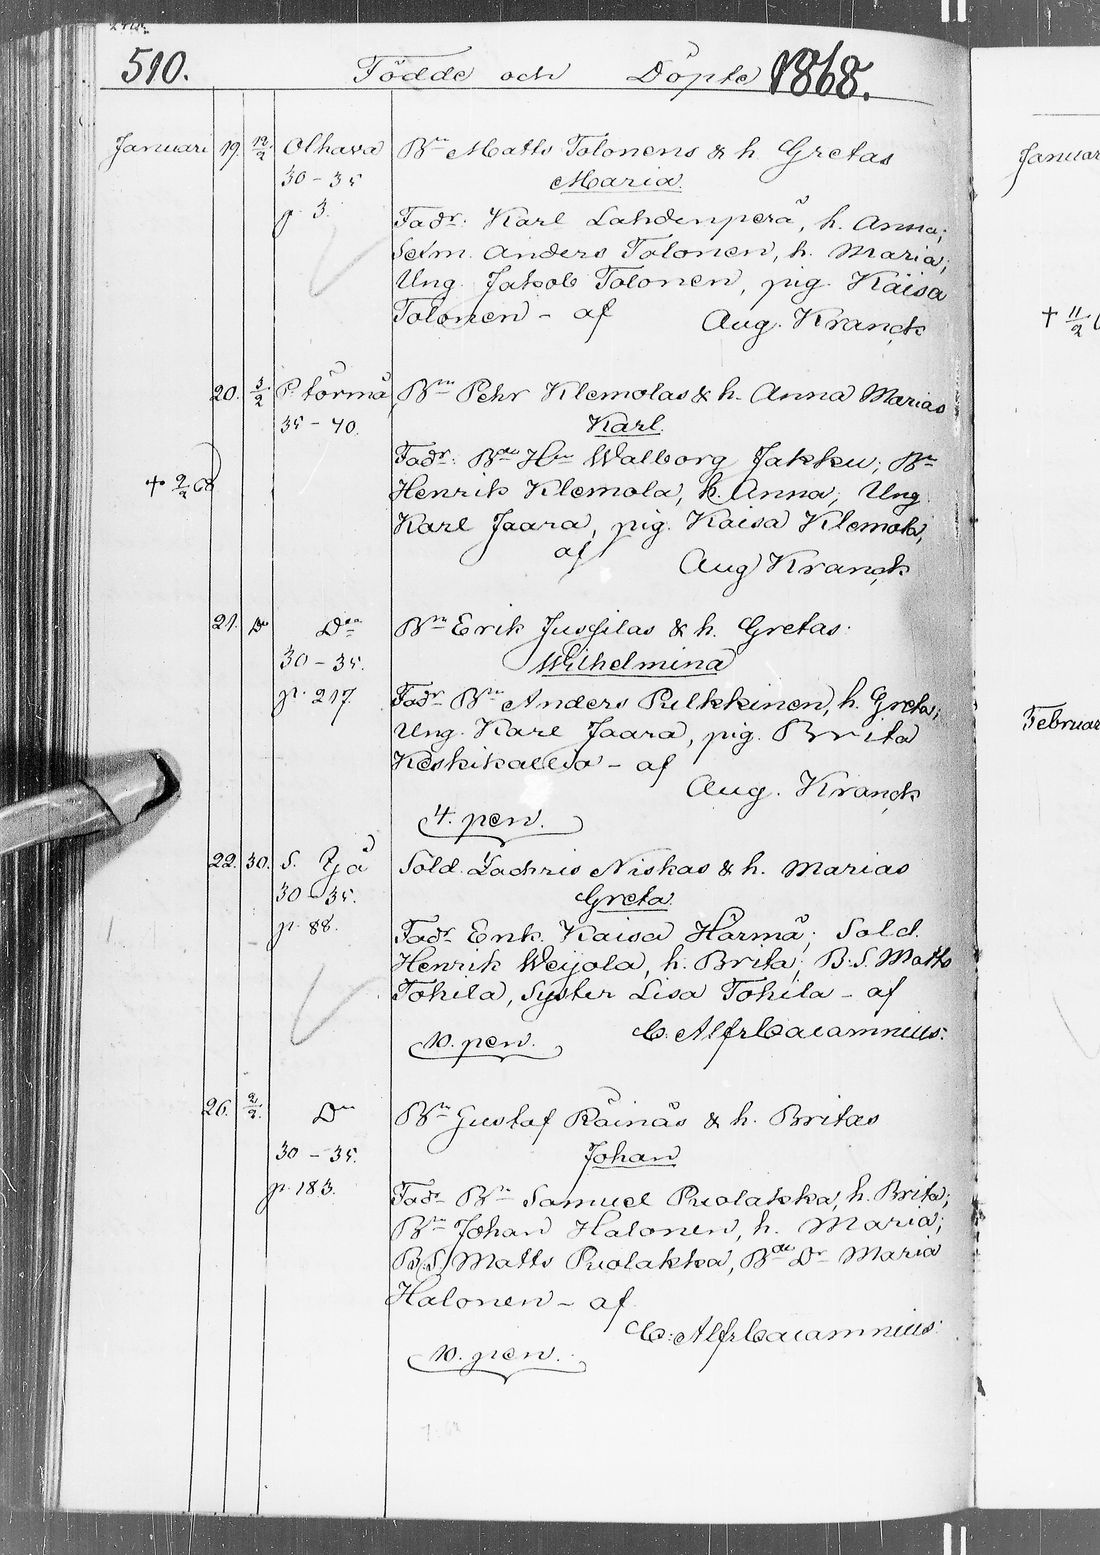 510. Födde och Döpte 1868.
Januari 19. 12/2 Olhava Bn Matts Tolonens & h. Gretas
30-35 Maria.
p. 3. Fadr: Karl Lahdenperä, h. Anna;
Setm. Anders Tolonen, h. Maria;
Ung. Jakob Tolonen, pig. Kaisa
Tolonen - af Aug. Kranck
20. 3/2 P. törmä Bn Pehr Klemolas & h. Anna Marias
35-40. Karl.
Fadr: Bde Hn Walborg Jakku; Bn
+ 9/2 68 Henrik Klemola, h. Anna; Ung.
Karl Jaara, pig. Kaisa Klemola,
af Aug Kranck
21. Do Don Bn Erik Jussilas & h. Gretas
30-35. Wilhelmina
p. 217. Fadr Bn Anders Pulkkinen, h. Greta;
Ung. Karl Jaara, pig. Brita
Keskikallio - af
Aug. Kranck
4. pen.
22. 30. S. Yjå Sold. Zachris Niskas & h. Marias
30-35. Greta.
p. 88. Fadr Enk. Kaisa Härmä; Sold.
Henrik Weijola, h. Brita; B.S. Matts
Tohila, Syster Lisa Tohila - af
10. pen. C. Alfr Cajamnius.
26. 2/2. Dn Bn Gustaf Räinäs & h. Britas
30-35. Johan
p. 183. Fadr Bn Samuel Puolakka, h. Brita;
Bn Johan Halonen, h. Maria;
B.S. Matts Puolakka, Bde Dr Maria
Halonen - af
C. Alfr Cajamnius.
10. pen.
Januar
+ 11/2
Februar